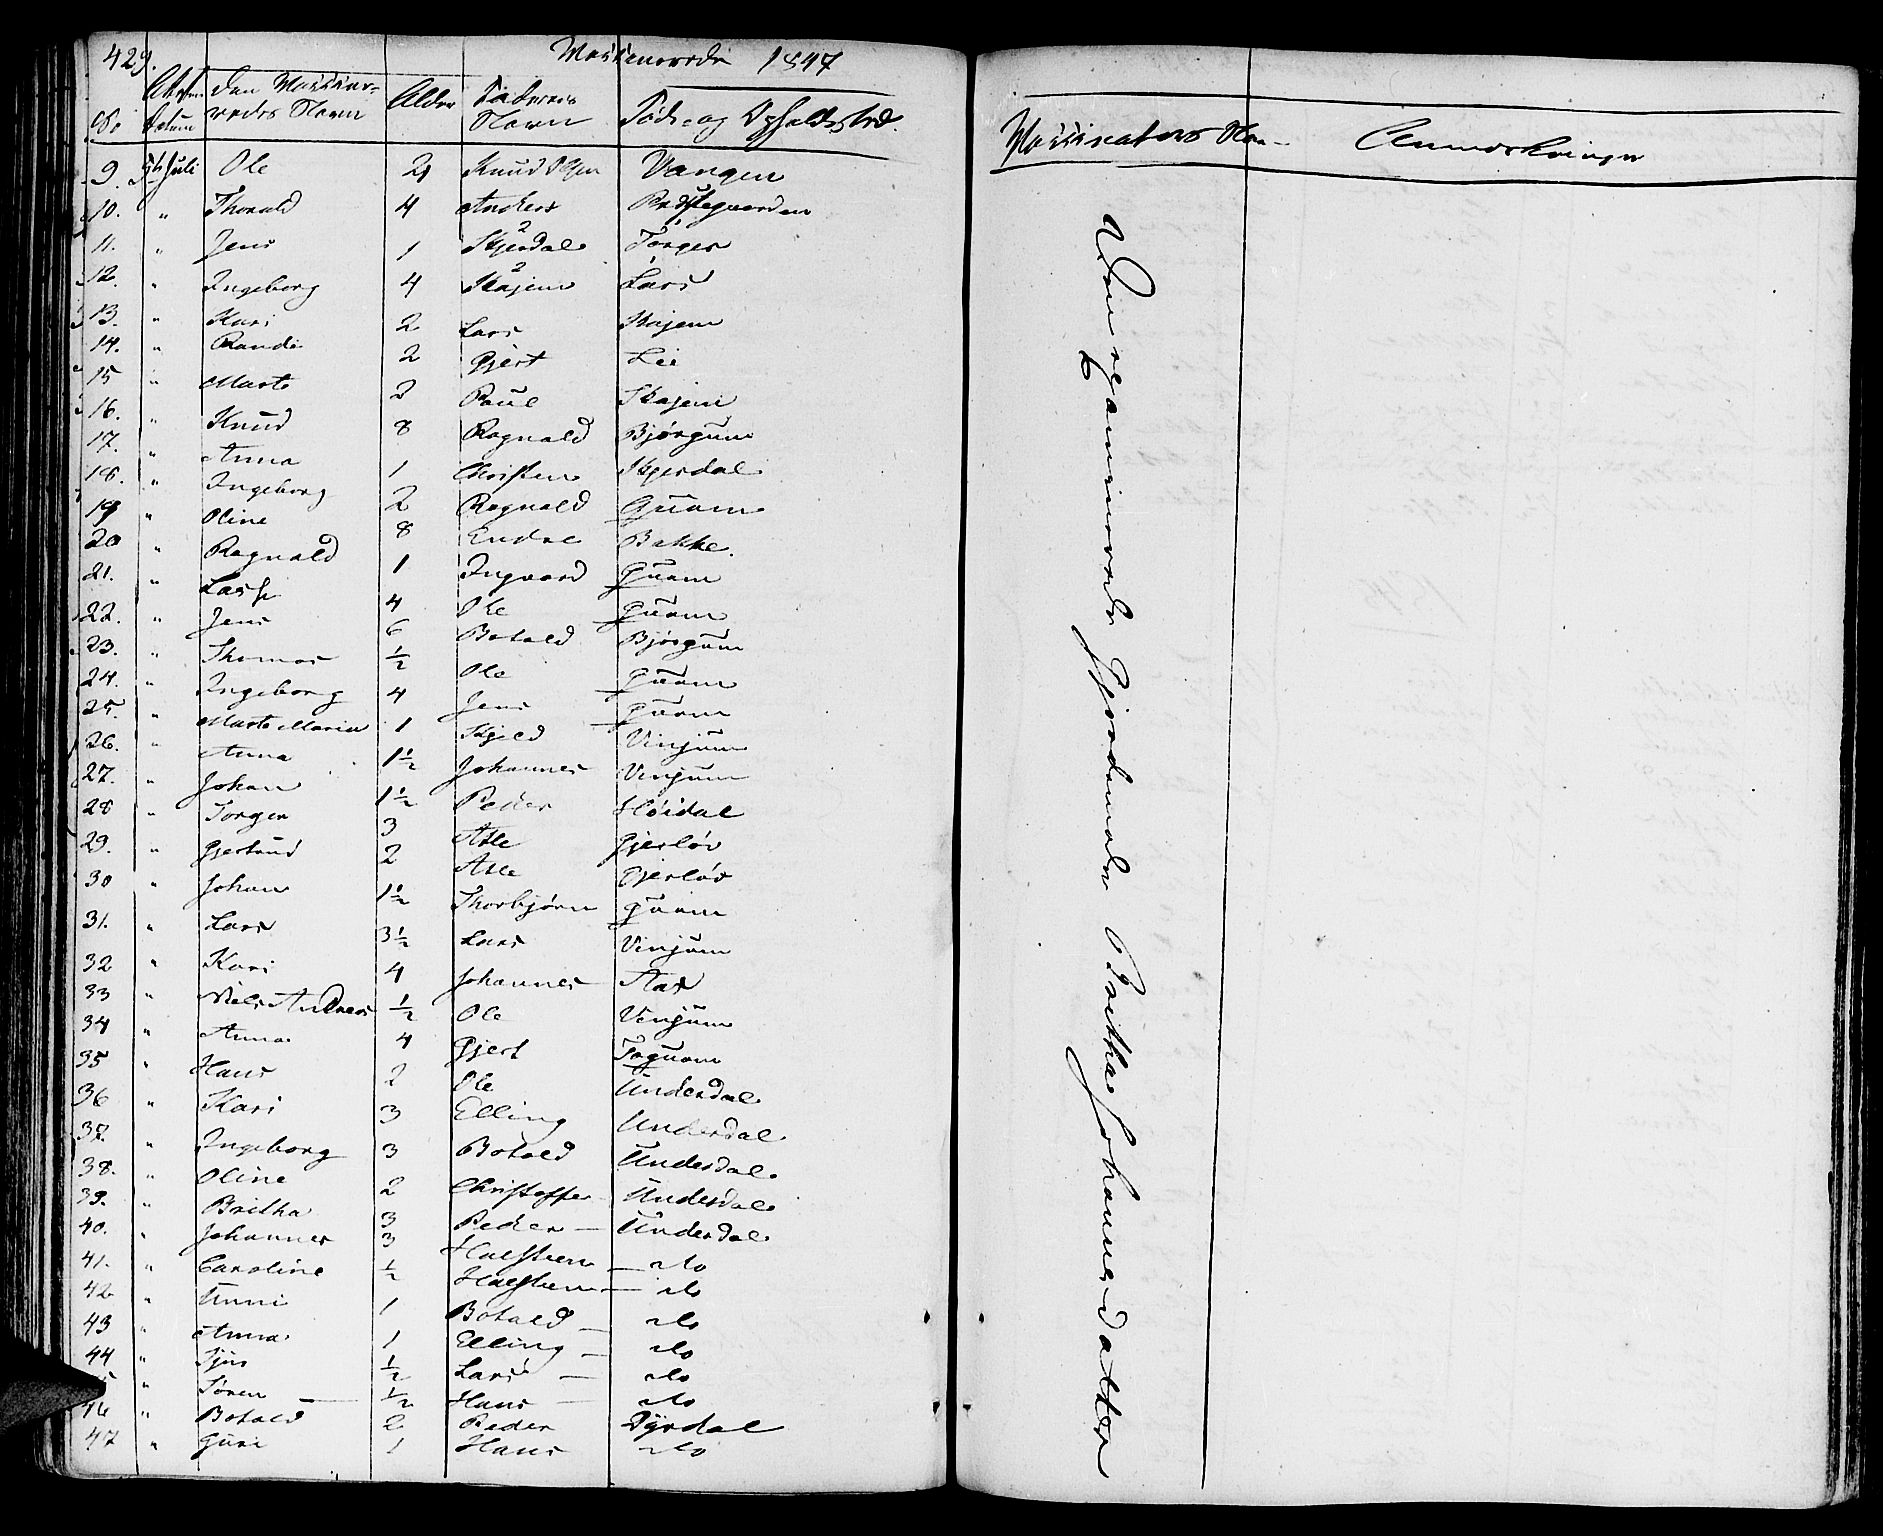 429.
Vaccinerede 1847
No
Attestens Datum
Den Vaccineredes Navn
Alder
Faderens Navn
Føde- og Opholdssted.
9. 5te Juli Ole 2 Knud Olsen Vangen
10. " Thorald 4 Anders Prestegaarden
11. " Jens 1 Skjerdal 2 Törger
12. " Ingeborg 4 Skajem 2 Lars
13. " Kari 2 Lars Skajem
14. " Randi 2 Gjert Lie
15 " Marte 2 Poul Skajem
16. " Knud 8 Ragnald Bjørgum
17. " Anna 1 Christen Skjerdal
18. " Ingeborg 2 Ragnald Qvam
19 " Oline 8 Endre Bakke.
20 " Ragnald 1 Ingvard Qvam
21. " Lasse 4 Ole Qvam
22. " Jens 6 Botold Bjørgum
23. " Thomas ½ Ole Qvam
24. " Ingeborg 4 Jens Qvam
25. " Marte Maria 1 Skjeld Vinjum
26. " Anna 1½ Johannes Vinjum
27. " Johan 1½ Peder Høidal
28 " Torger 3 Atle Gjerløv
29. " Gjertrud 2 Atle Gjerløv
30 " Johan 1½ Thorbjørn Qvam
31. " Lars 3½ Lars Vinjum
32 " Kari 4 Johannes Aas
33 " Niels Andreas ½ Ole Vinjum
34 " Anna 4 Gjert Foqvam
35 " Hans 2 Ole Underdal
36 " Kari 3 Elling Underdal
37. " Ingeborg 3 Botold Underdal
38. " Oline 2 Christoffer Underdal
39. " Britha 3 Peder — Underdal
40. " Johannes 3 Halsteen — do
41. " Caroline ½ Halsteen — do
42 " Unni 1 Botold — do
43 " Anna 1 Elling — do
44 " Sjur ½ Lars — do
" Søren — ½ Hans — do
46 " Botold 2 Peder Dyrdal
47 " Guri 1 Hans do
Vaccinateurs Navn
Anmerkninger
Den examinerede Gjordemoder Brithe Johannesdatter